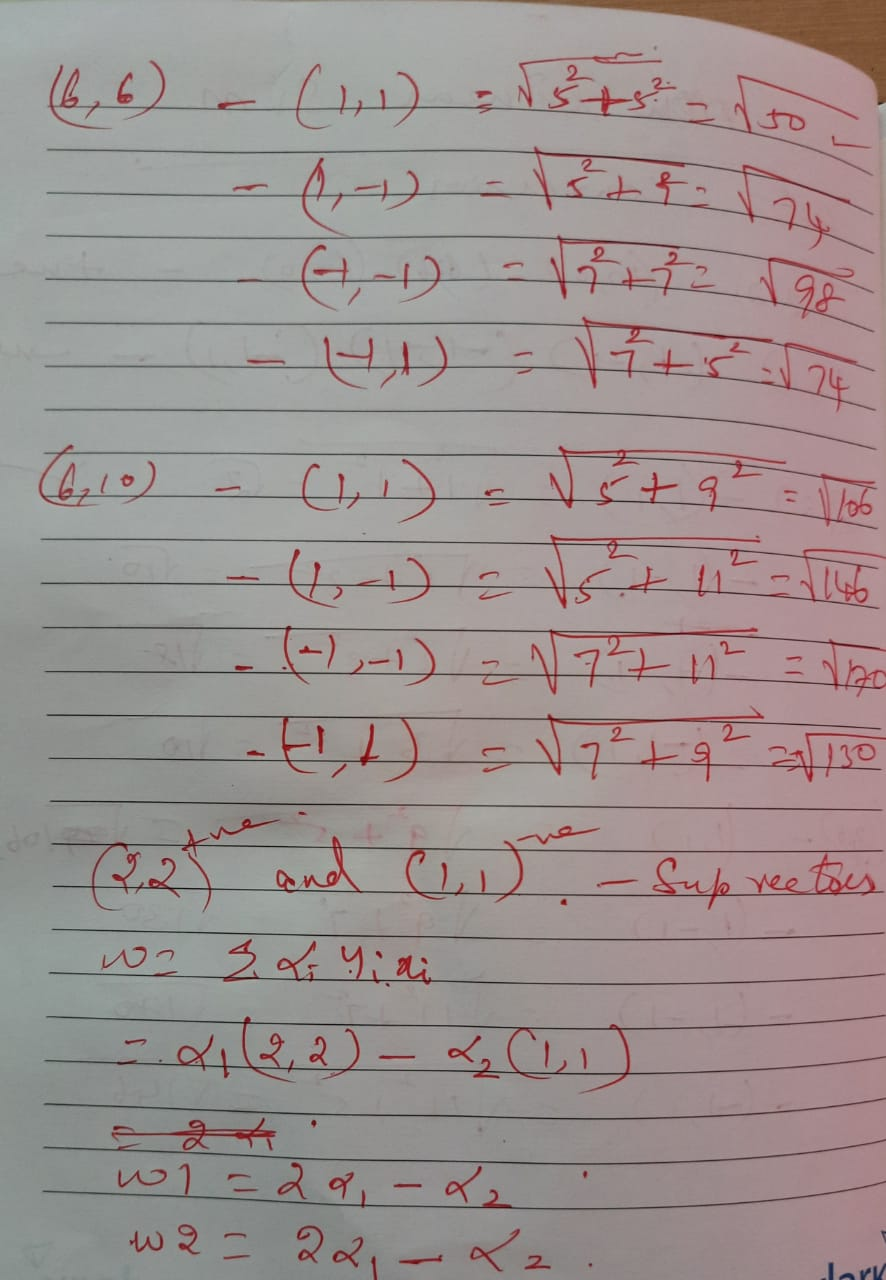 (6,6) - (1,1) = √5²+5² = √50
- (1,-1) = √5²+7² = √74
- (-1,-1) = √7²+7² = √98
- (-1,1) = √7²+5² = √74
(6,10) - (1,1) = √5²+9² = √106
- (1,-1) = √5²+11² = √146
- (-1,-1) = √7²+11² = √170
- (-1,1) = √7²+9² = √130
(2,2)+ve and (1,1)-ve. - Sup vectors
w = Σ αi yi xi
= α1(2,2) - α2(1,1)
= 2α1
w1 = 2α1 - α2
w2 = 2α1 - α2.